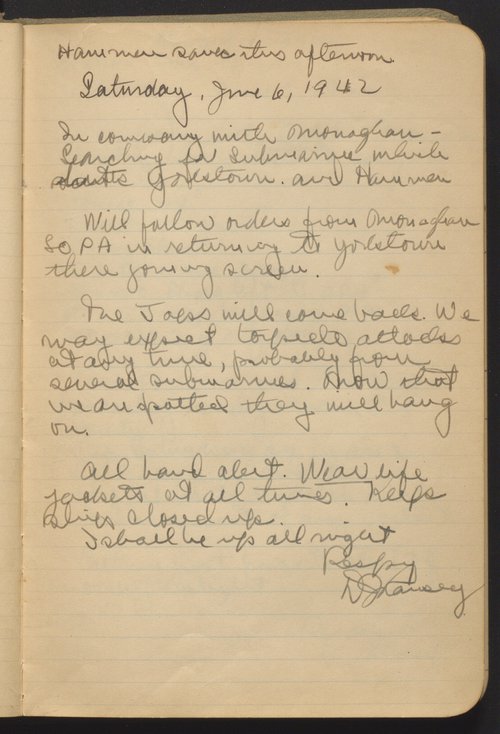 Hammen sank this afternoon.
Saturday, June 6, 1942
In company with Monaghan -
Searching for submarine which
Yorktown. and Hammen
Will follow orders from Monaghan
SOPA in returning to Yorktown
there joining screen.
The Japs will come back. We
may expect torpedo attacks
at any time, probably from
several submarines. Know that
we are spotted they will hang
on.
All hand alert. Wear life
jackets at all times. Keep
ship closed up.
I shall be up all night
Respy
D J Ramsey